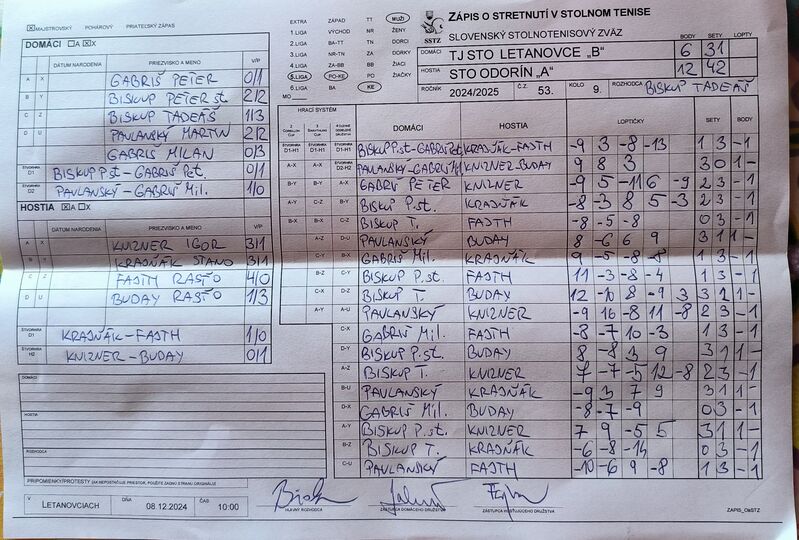 ☒MAJSTROVSKÝ POHÁROVÝ PRIATEĽSKÝ ZÁPAS
DOMÁCI ☐A ☒X
DÁTUM NARODENIA PRIEZVISKO A MENO V/P
A X GABRIŠ PETER 0/1
B Y BISKUP PETER st. 2/2
C Z BISKUP TADEÁŠ 1/3
D U PAVLANSKÝ MARTIN 2/2
GABRIŠ MILAN 0/3
ŠTVORHRA D1 BISKUP P.st - GABRIŠ Pet. 0/1
ŠTVORHRA D2 PAVLANSKÝ - GABRIŠ Mil. 1/0
HOSTIA ☒A ☐X
DÁTUM NARODENIA PRIEZVISKO A MENO V/P
A X KNIZNER IGOR 3/1
B Y KRAJŇÁK STANO 3/1
C Z FAJTH RASŤO 4/0
D U BUDAY RASŤO 1/3
ŠTVORHRA D1 KRAJŇÁK - FAJTH 1/0
ŠTVORHRA H2 KNIZNER - BUDAY 0/1
DOMÁCI
HOSTIA
ROZHODCA
PRIPOMIENKY/PROTESTY (AK NEPOSTAČUJE PRIESTOR, POUŽITE ZADNÚ STRANU ORIGINÁLU)
V LETANOVCIACH DŇA 08.12.2024 ČAS 10:00
EXTRA ZÁPAD TT MUŽI
1.LIGA VÝCHOD NR ŽENY
2.LIGA BA-TT TN DORCI
3.LIGA NR-TN ZA DORKY
4.LIGA ZA-BB BB ŽIACI
5.LIGA PO-KE PO ŽIAČKY
6.LIGA BA KE
MO
SSTZ
ZÁPIS O STRETNUTÍ V STOLNOM TENISE
SLOVENSKÝ STOLNOTENISOVÝ ZVÄZ
BODY SETY LOPTY
DOMÁCI TJ STO LETANOVCE „B" 6 31
HOSTIA STO ODORÍN „A" 12 42
ROČNÍK 2024/2025 Č.Z. 53. KOLO 9. ROZHODCA BISKUP TADEÁŠ
HRACÍ SYSTÉM DOMÁCI HOSTIA LOPTIČKY SETY BODY
ŠTVORHRA D1-H1 ŠTVORHRA D1-H1 ŠTVORHRA D1-H1 BISKUP P.st - GABRIŠ Pet. KRAJŇÁK - FAJTH -9 3 -8 -13 1 3 - 1
A-X A-X ŠTVORHRA D2-H2 PAVLANSKÝ - GABRIŠ Mil KNIZNER - BUDAY 9 8 3 3 0 1 -
B-Y B-Y A-X GABRIŠ PETER KNIZNER -9 5 -11 6 -9 2 3 - 1
A-Y C-Z B-Y BISKUP P.st. KRAJŇÁK -8 3 8 5 -3 2 3 - 1
B-X B-X C-Z BISKUP T. FAJTH -8 -5 -8 0 3 - 1
A-Z D-U PAVLANSKÝ BUDAY 8 -6 6 9 3 1 1 -
C-Y B-X GABRIŠ Mil. KRAJŇÁK 9 -5 -8 -8 1 3 - 1
B-Z C-Y BISKUP P.st. FAJTH 11 -3 -8 -4 1 3 - 1
C-X D-Z BISKUP T. BUDAY 12 -10 8 -9 3 3 2 1 -
A-Y A-U PAVLANSKÝ KNIZNER -9 16 -8 11 -8 2 3 - 1
C-X GABRIŠ Mil. FAJTH -8 -7 10 -3 1 3 - 1
D-Y BISKUP P.st. BUDAY 8 -8 3 9 3 1 1 -
A-Z BISKUP T. KNIZNER 7 -7 -5 12 -8 2 3 - 1
B-U PAVLANSKÝ KRAJŇÁK -9 3 7 9 3 1 1 -
D-X GABRIŠ Mil. BUDAY -8 -7 -9 0 3 - 1
A-Y BISKUP P.st. KNIZNER 7 9 -5 5 3 1 1 -
B-Z BISKUP T. KRAJŇÁK -6 -8 -14 0 3 - 1
C-U PAVLANSKÝ FAJTH -10 -6 9 -8 1 3 - 1
HLAVNÝ ROZHODCA ZÁSTUPCA DOMÁCEHO DRUŽSTVA ZÁSTUPCA HOSŤUJÚCEHO DRUŽSTVA
ZÁPIS_OsSTZ